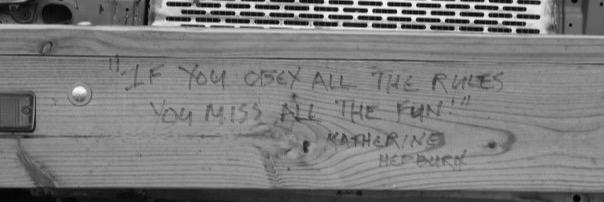 "IF YOU OBEY ALL THE RULES
YOU MISS ALL THE FUN!"
KATHERINE
HEPBURN